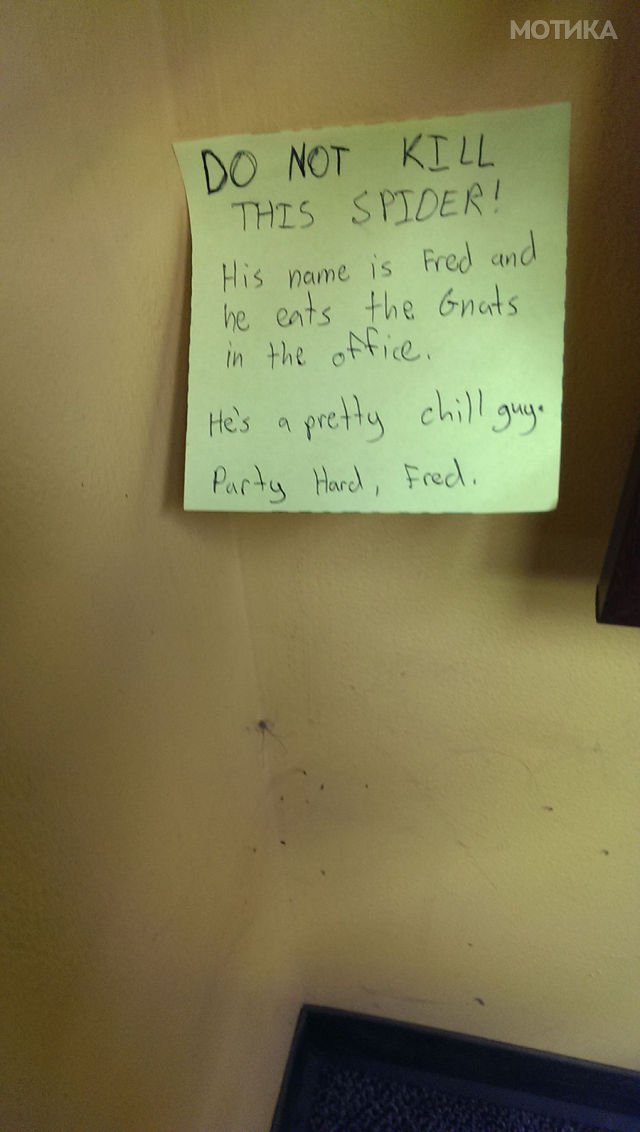 МОТИКА
DO NOT KILL
THIS SPIDER!
His name is Fred and
he eats the Gnats
in the office.
He's a pretty chill guy.
Party Hard, Fred.